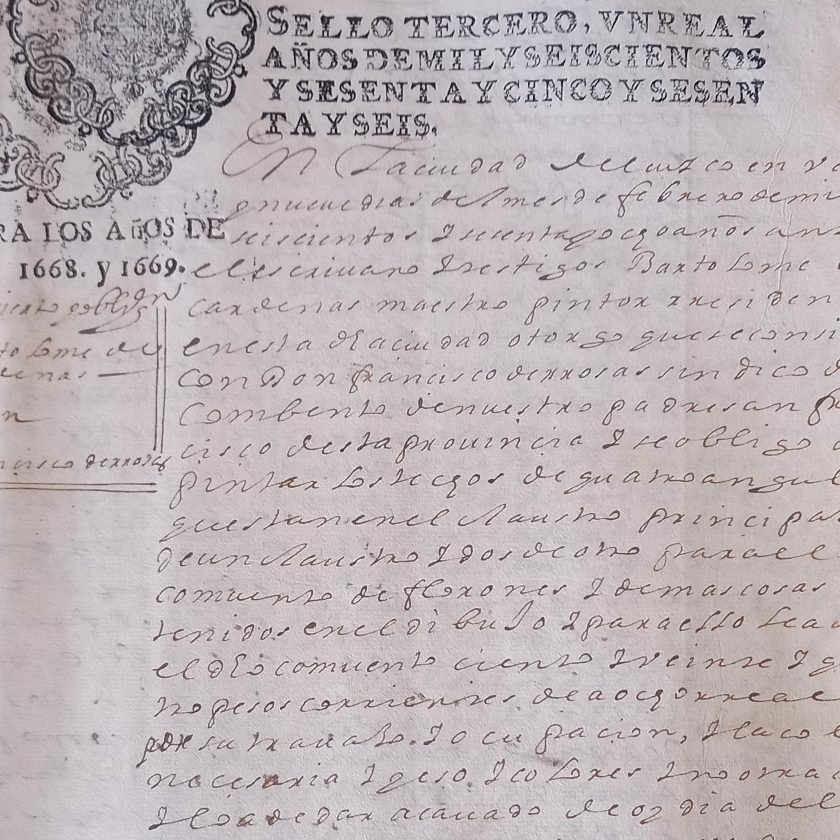 SELLO TERCERO, VNREAL
AÑOS DE MIL Y SEISCIENTOS
Y SESENTA Y CINCO Y SESEN
TA Y SEIS.
RA LOS AÑOS DE
1668. y 1669.
En la ciudad del cuzco en ve
y nueue dias del mes de febrero de mi
seiscientos y sesenta y ocho años an
el escriuano y testigos Bartolome
cardenas maestro pintor rresiden
en esta dha ciudad otorgo que se consi
con Don francisco de rrosas sindico d
Combento de nuestro padre san fr
cisco desta prouincia y se obligo a
pintar los techos de quatro angul
que stan en el claustro principa
de un claustro y dos de otro para el
comuento de florones y demas cosas
tenidos en el dibujo y para ello le a
el dho comuento ciento y veinte y q
tro pesos corrientes de a ocho rreal
por su trauajo y ocupacion, y la co
necesaria y yeso y colores y no otra
y lo a de dar acauado de oy dia del
miento y oblig on
to lome de
denas
n
ncisco de rrosas